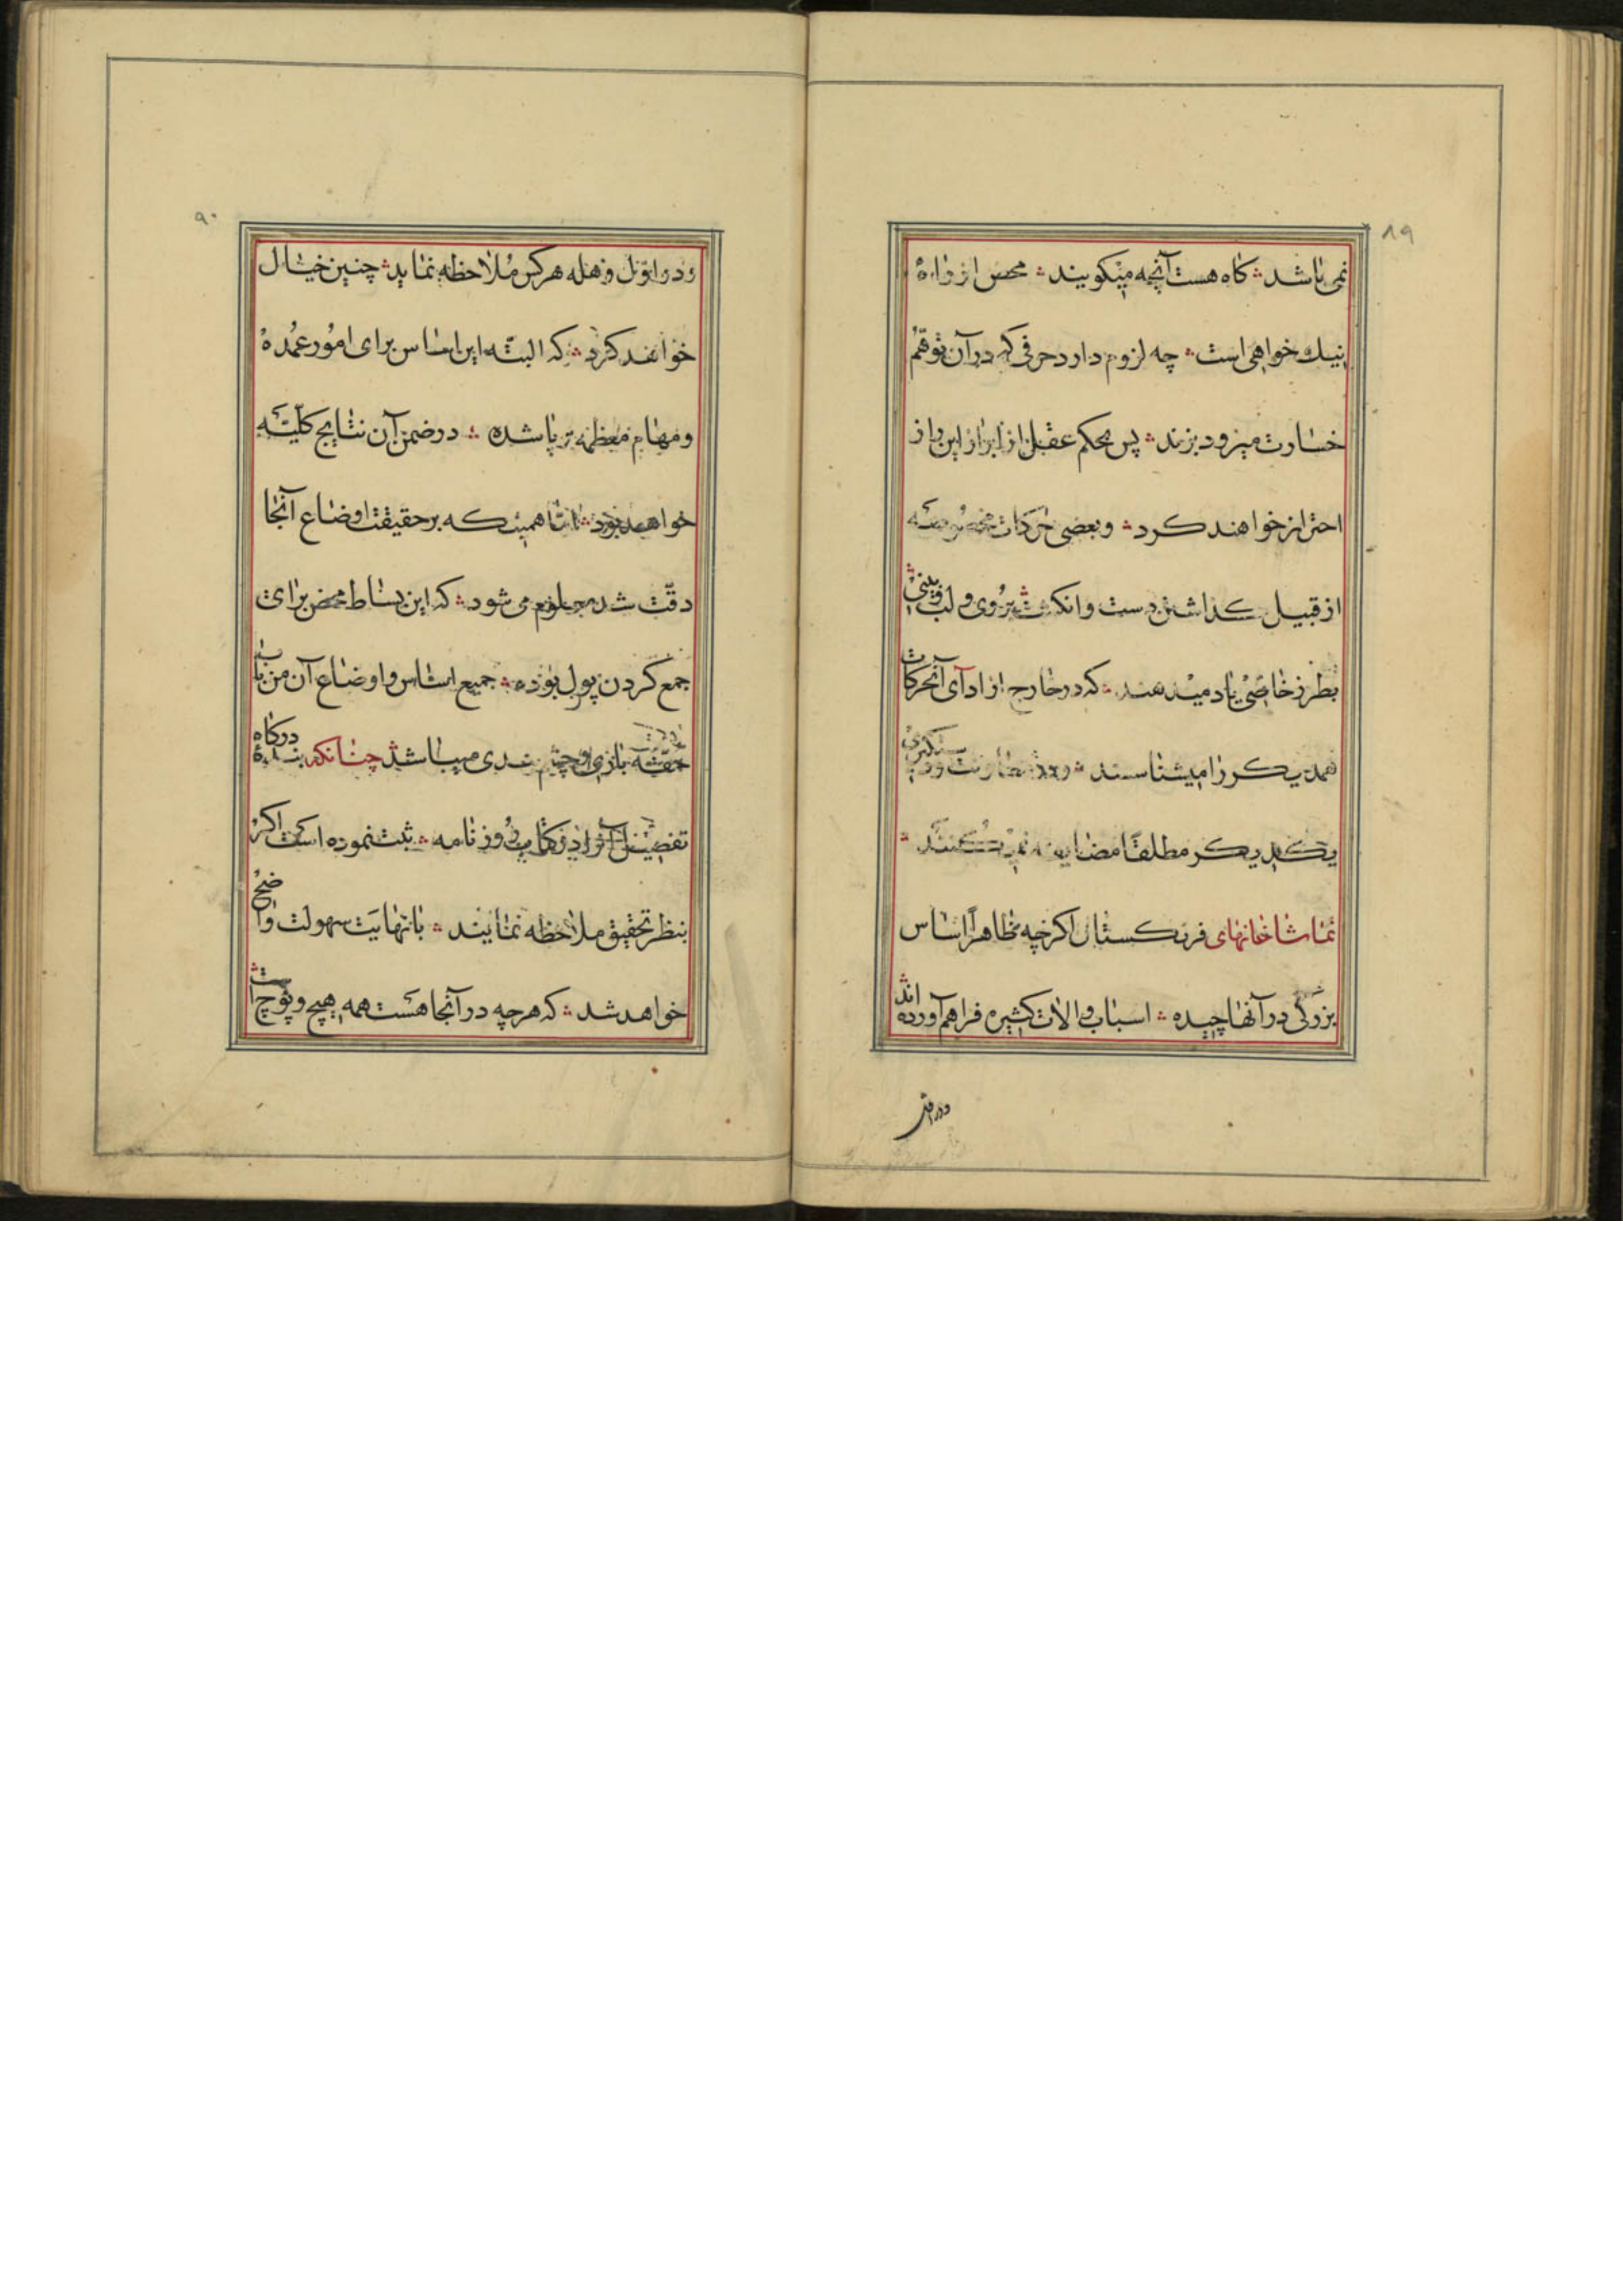 ۸۹
نمی باشد ؞ کاه هست آنچه میکویند ؞ محض از راه
نیک خواهی است ؞ چه لزوم دارد حرفی که در آن توهم
خسارت میرود بزنند ؞ پس بحکم عقل از ابراز این راز
احتراز خواهند کرد ؞ و بعضی حرکات مخصوصه
از قبیل کذاشتن دست و انکشت بروی و لب و بینی ؞
بطرز خاصی یاد میدهند ؞ که در خارج از ادآی آنحرکات
همدیکر را میشناسند ؞ و در
یکدیکر مطلقا مضایقه نمی کنند ؞
تماشاخانهای فرنکستان اکرچه بظاهراً اساس
بزرکی در آنها چیده ؞ اسباب و الات کثیره فراهم آورده اند ؞
و در اول
۹۰
و در اول وهله هرکس ملاحظه نماید ؞ چنین خیال
خواهند کرد ؞ که البته این اساس برای امور عمده
و مهام معظمه بر پا شده ؞ در ضمن آن نتایج کلیّه
خواهد بود ؞ امّا همینکه بر حقیقت اوضاع آنجا
دقّت شد معلوم می شود ؞ که این بساط محض برای
جمع کردن پول بوده ؞ جمیع اساس و اوضاع آن من باب
حقّه بازی و چشم بندی میباشد ؞ چنانکه بندهٔ درکاه
تفصیل آنرا در کتاب روزنامه ؞ ثبت نموده است که اکر
بنظر تحقیق ملاحظه نمایند ؞ با نهایت سهولت واضح
خواهد شد ؞ که هرچه در آنجا هست همه هیچ و پوچ است ؞